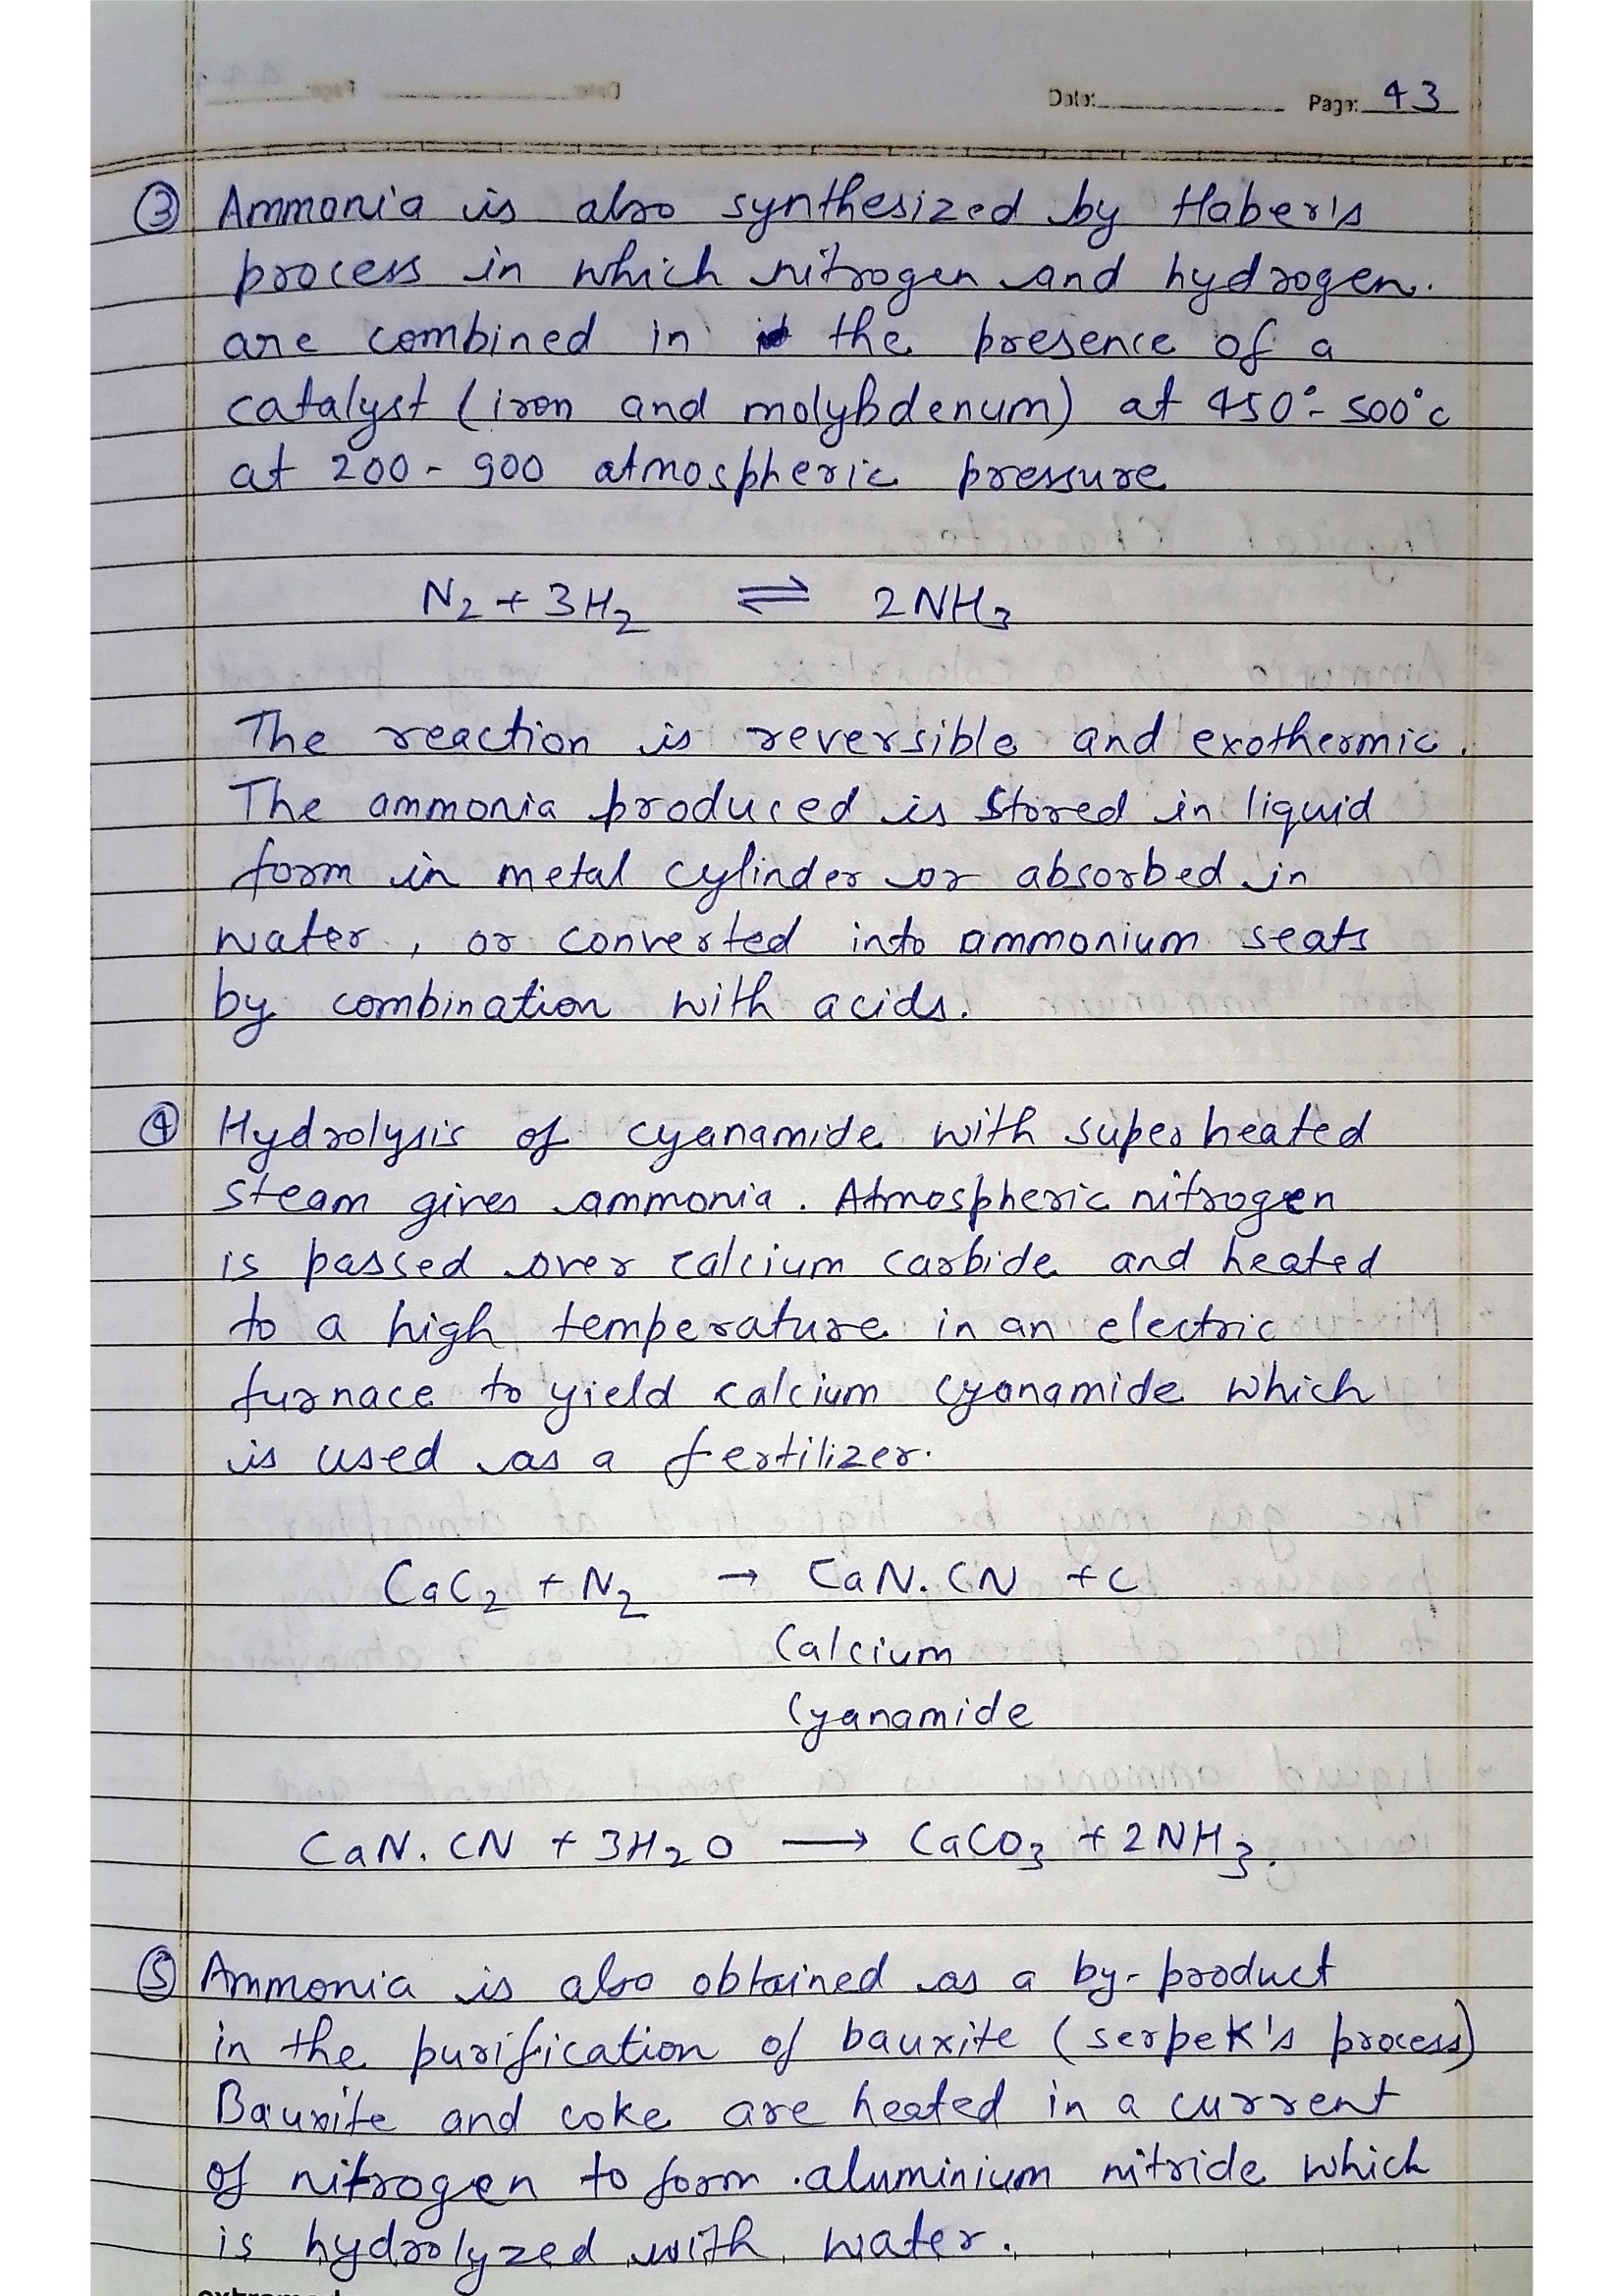 Date: Page: 43
③ Ammonia is also synthesized by Haber's
process in which nitrogen and hydrogen.
are combined in the presence of a
catalyst (iron and molybdenum) at 450°- 500°c
at 200 - 900 atmospheric pressure
N₂ + 3H₂ ⇌ 2NH₃
The reaction is reversible and exothermic.
The ammonia produced is stored in liquid
form in metal cylinder or absorbed in
water, or converted into ammonium seats
by combination with acids.
④ Hydrolysis of cyanamide with super heated
steam gives ammonia. Atmospheric nitrogen
is passed over calcium carbide and heated
to a high temperature in an electric
furnace to yield calcium cyanamide which
is used as a fertilizer.
CaC₂ + N₂ → CaN.CN + C
Calcium
Cyanamide
CaN.CN + 3H₂O ⟶ CaCO₃ + 2NH₃.
⑤ Ammonia is also obtained as a by-product
in the purification of bauxite (serpek's process)
Bauxite and coke are heated in a current
of nitrogen to form aluminium nitride which
is hydrolyzed with water.